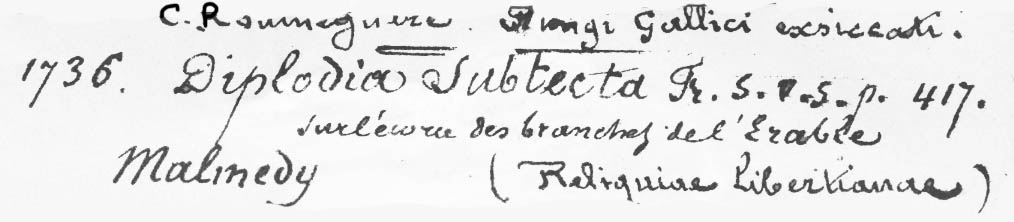 C. Roumeguère. Fungi Gallici exsiccati.
1736. Diplodia Subtecta Fr. S. V. S. p. 417.
sur l'écorce des branches de l'Erable
Malmedy (Reliquiae Libertianae)